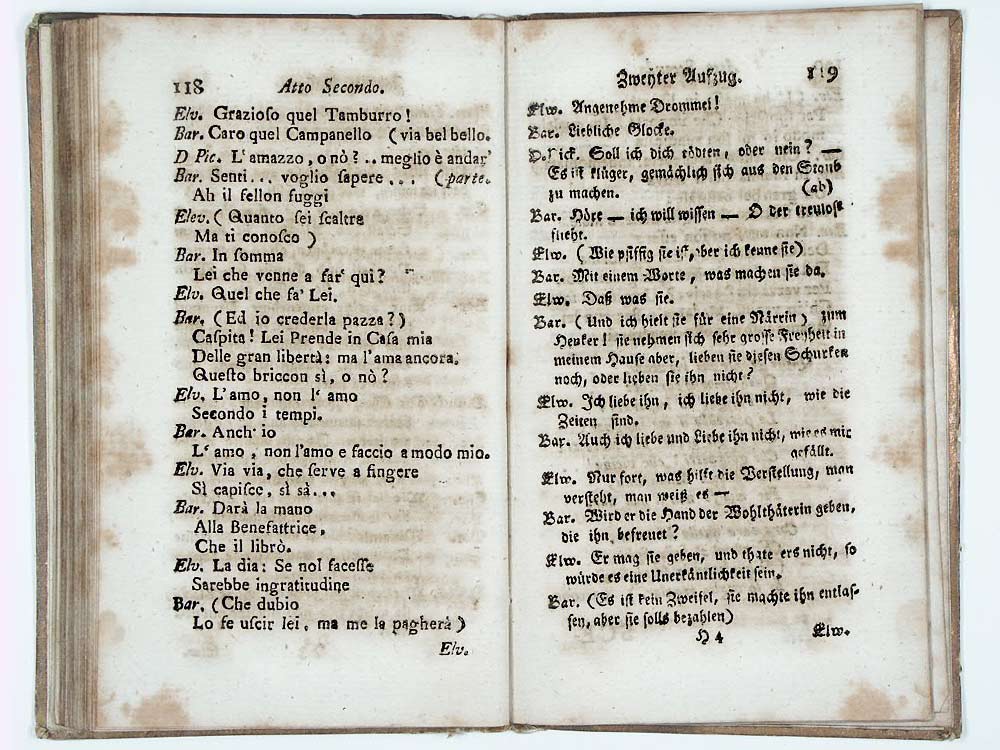 118 Atto Secondo.
Elv. Grazioſo quel Tamburro!
Bar. Caro quel Campanello (via bel bello.
D Pic. L'amazzo, o nò? .. meglio è andar'
Bar. Senti... voglio ſapere... (parte.
Ah il fellon fuggi
Elev. (Quanto ſei ſcaltre
Ma ti conoſco)
Bar. In ſomma
Lei che venne a far' quì?
Elv. Quel che fa' Lei.
Bar. (Ed io crederla pazza?)
Caſpita! Lei Prende in Caſa mia
Delle gran libertà: ma l'ama ancora,
Queſto briccon sì, o nò?
Elv. L'amo, non l'amo
Secondo i tempi.
Bar. Anch' io
L'amo, non l'amo e faccio a modo mio.
Elv. Via via, che ſerve a fingere
Sì capiſce, sì sà...
Bar. Darà la mano
Alla Benefattrice,
Che il librò.
Elv. La dia: Se nol faceſſe
Sarebbe ingratitudine
Bar. (Che dubio
Lo fe uſcir lei, ma me la pagherà)
Elv.
Zweyter Aufzug. 119
Elw. Angenehme Drommel!
Bar. Liebliche Glocke.
D. Pick. Soll ich dich tödten, oder nein? —
Es iſt klüger, gemächlich ſich aus den Staub
zu machen. (ab)
Bar. Höre — ich will wiſſen — O der treuloſe
flieht.
Elw. (Wie pfiffig ſie iſt, aber ich kenne ſie)
Bar. Mit einem Worte, was machen ſie da.
Elw. Daß was ſie.
Bar. (Und ich hielt ſie für eine Närrin) zum
Henker! ſie nehmen ſich ſehr groſſe Freyheit in
meinem Hauſe aber, lieben ſie dieſen Schurken
noch, oder lieben ſie ihn nicht?
Elw. Ich liebe ihn, ich liebe ihn nicht, wie die
Zeiten ſind.
Bar. Auch ich liebe und Liebe ihn nicht, wie es mir
gefällt.
Elw. Nur fort, was hilft die Verſtellung, man
verſteht, man weiß es —
Bar. Wird er die Hand der Wohlthäterin geben,
die ihn befreuet?
Elw. Er mag ſie geben, und thäte ers nicht, ſo
würde es eine Unerkäntlichkeit ſein.
Bar. (Es iſt kein Zweifel, ſie machte ihn entlaſ-
ſen, aber ſie ſolls bezahlen)
H 4 Elw.